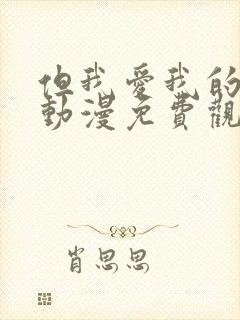 但我愛我的
動漫免費觀
肖思思